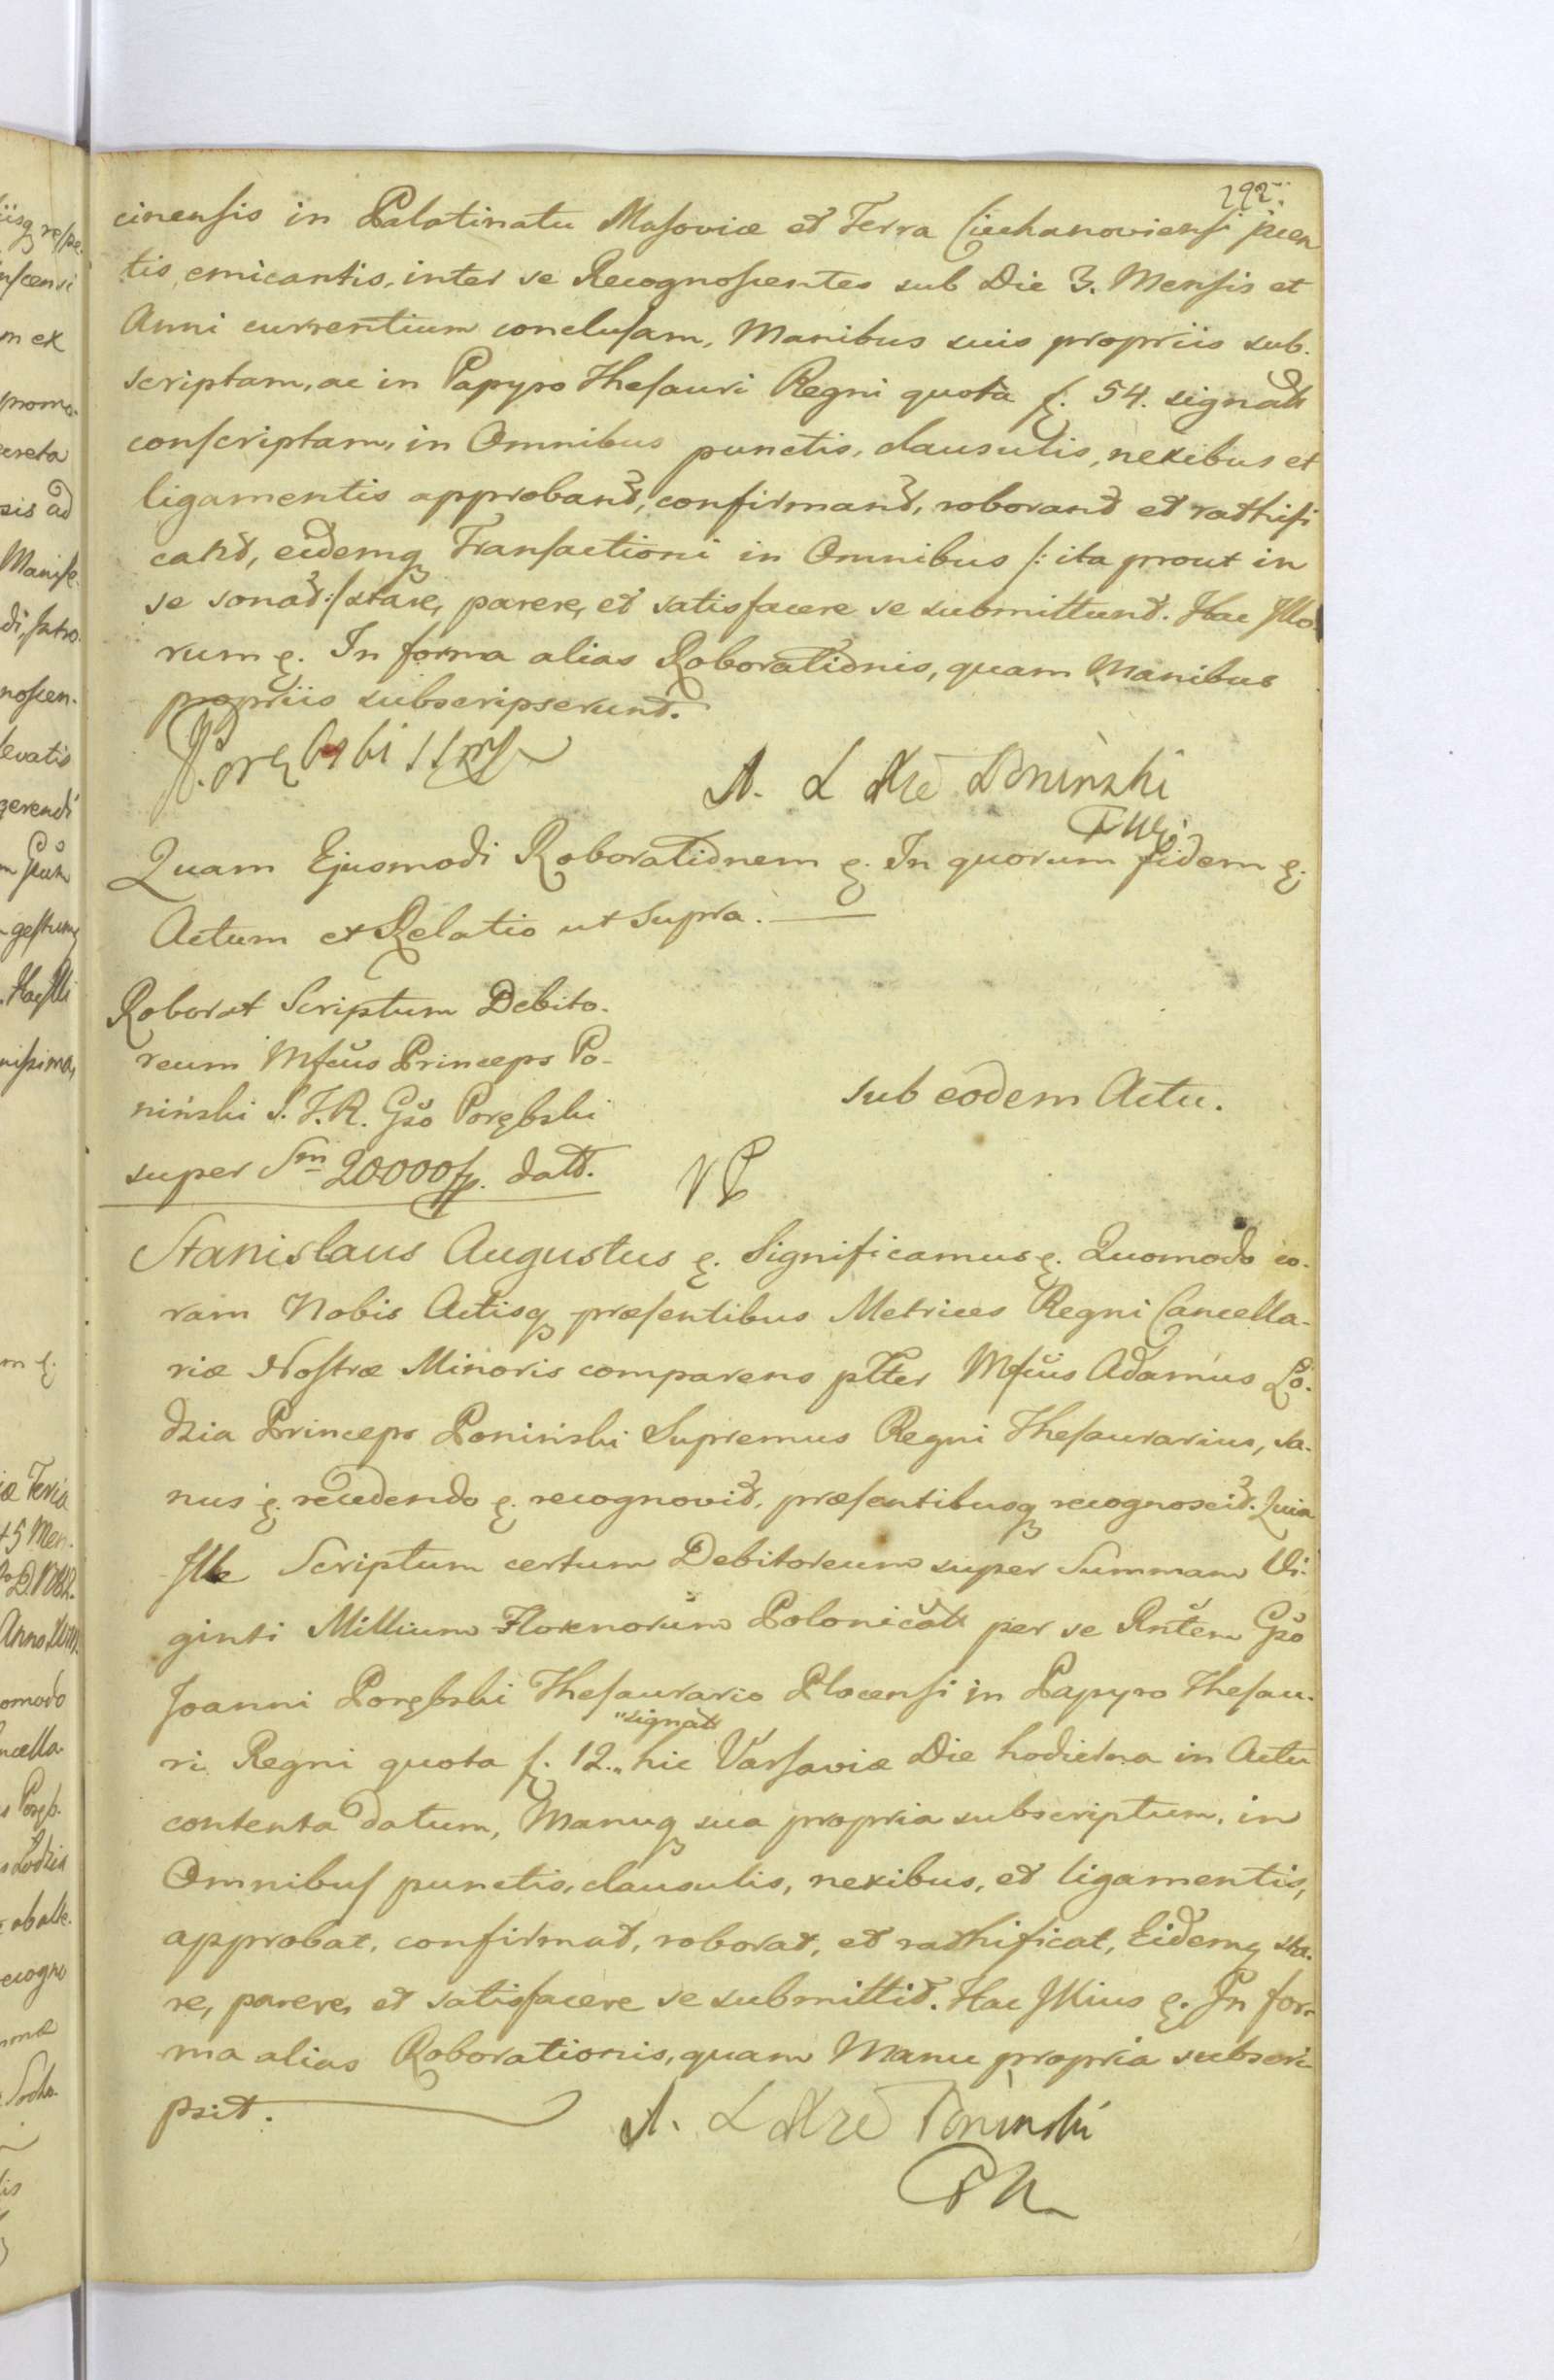 292.
cinensis in Palatinatu Masoviæ et Terra Ciechanoviensi jacen
tis, emicantis, inter se Recognoscentes sub Die 3. Mensis et
Anni currentium conclusam, Manibus suis propriis sub.
scriptam, ac in Papyro Thesauri Regni quota f. 54. signatt
conscriptam, in Omnibus punctis, clausulis, nexibus et
ligamentis approbant, confirmant, roborant et rathifi
cant, eidemq Transactioni in Omnibus /: ita prout in
se sonat :/ stare, parere, et satisfacere se submittunt. Hac Illo.
rum ę. In forma alias Roborationis, quam Manibus
propriis subscripserunt.
Porębski
A. L Xże Poninski
Quam Ejusmodi Roborationem ę. In quorum fidem ę.
Actum et Relatio ut Supra.
Roborat Scriptum Debito.
reum Mfcus Princeps Po-
niński S. T. R. Gso Porębski
super Sm 20000 fp. datt.
sub eodem Actu.
Stanislaus Augustus ę. Significamus ę. Quomodo co.
ram Nobis Actisq præsentibus Metrices Regni Cancella-
riæ Nostræ Minoris comparens pltter Mfcus Adamus Lo.
dzia Princeps Poniński Supremus Regni Thesaurarius, sa.
nus ę. recedendo ę. recognovit, præsentibusq recognoscit. Quia
Ille Scriptum certum Debitoreum super Summam Vi.
ginti Millium Florenorum Polonicatt per se Rntem Gso
Joanni Porębski Thesaurario Plocensi in Papyro Thesau.
"signatt
ri Regni quota f. 12. „ hic Varsaviæ Die hodierna in Actu
contenta datum, Manuq sua propria subscriptum, in
Omnibus punctis, clausulis, nexibus, et ligamentis,
approbat, confirmat, roborat, et rathificat, Eidemq sta.
re, parere, et satisfacere se submittit. Hac Illius ę. In for-
ma alias Roborationis, quam Manu propria subscri
psit.
A. L Xże Poninski